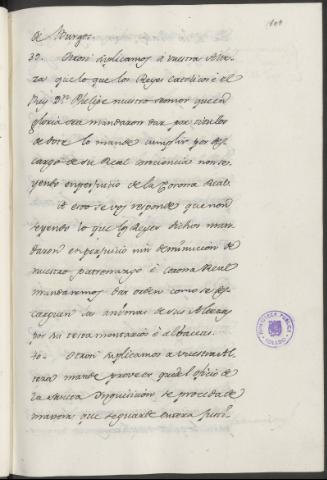 de Burgos.
39. Otrosi suplicamos á vuestra Alte-
za que lo que los Reyes Catolicos é el
Rey Dn. Phelipe nuestro señor que en
gloria sea mandaron dar por titulos
de dote lo mande cumplir por des-
cargo de su Real conciencia non se-
yendo en perjuicio de la Corona Real.
A esto se vos responde que non
seyendo lo que los Reyes dichos man-
daron en perjuicio nin deminucion de
nuestro patromonyo é corona Real
mandaremos dar orden como se des-
carguen las anomas de sus Altezas
por sus testamentarios é albaceas.
40. Otrosi suplicamos a vuestra Al-
teza mande proveer que en el oficio de
la Santa Inquisicion se proceda de
manera que se guarde entera justi-
BIBLIOTECA PUBLICA
TOLEDO